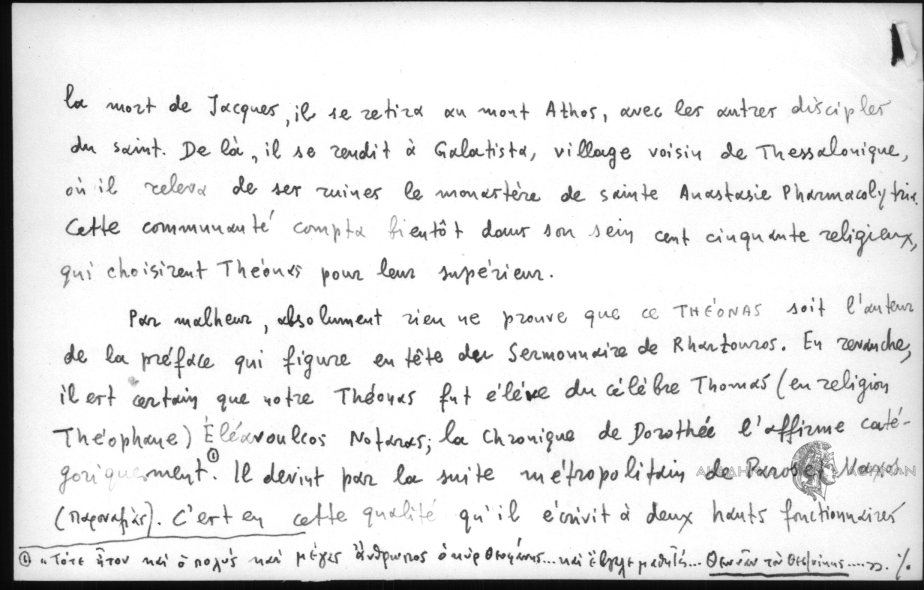 la mort de Jacques, il se retira au mont Athos, avec les autres disciples
du saint. De là, il se rendit à Galatista, village voisin de Thessalonique,
où il releva de ses ruines le monastère de sainte Anastasie Pharmacolytria.
Cette communauté compta bientôt dans son sein cent cinquante religieux,
qui choisirent Théonas pour leur supérieur.
Par malheur, absolument rien ne prouve que ce THÉONAS soit l'auteur
de la préface qui figure en tête du Sermonnaire de Rhartouros. En revanche,
il est certain que notre Théonas fut élève du célèbre Thomas (en religion
Théophane) Éléavoulcos Notaras; la Chronique de Dorothée l'affirme caté-
goriquement①. Il devint par la suite métropolitain de Paros et Naxos
(Παροναξίας). C'est en cette qualité qu'il écrivit à deux hauts fonctionnaires
① "Τότε ἦτον καὶ ὁ πολὺς καὶ μέγας ἄνθρωπος ὁ κὺρ Θεοφάνης... καὶ ἔβγαλε μαθητάς... Θεωνᾶν τὸν .... ». ./.